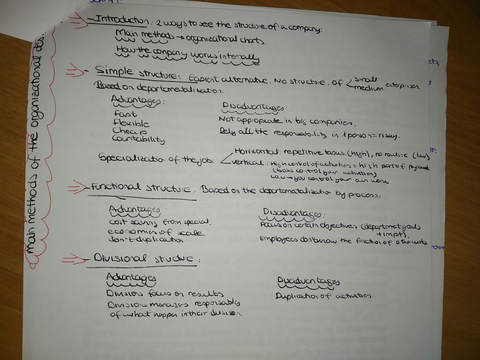 Main methods of the organizational
Introduction: 2 ways to see the structure of a company:
Main methods → organizational charts
How the company works internally
Simple structure: No structure. Of small
medium enterprises
Based on departamentalisation.
Advantages: Disadvantages
Fast Not appropriate in big companies.
Flexible Rely all the responsability in 1 person = risky.
Cheap
Countability
Specialization of the job Horizontal: repetitive tasks (high), no routine (low)
vertical: High control of activities = high part of
Low → you control your own work
Functional structure: Based on the departamentalisation by process.
Advantages Disadvantages:
Cost saving from special Focus on certain objectives (department goals
economics of scale + impt).
Don't duplication Employees do not know the function of other units
Divisional structure:
Advantages Disadvantages
Divisions focus on results Duplication of activities
Division managers responsable
of what happen in their division